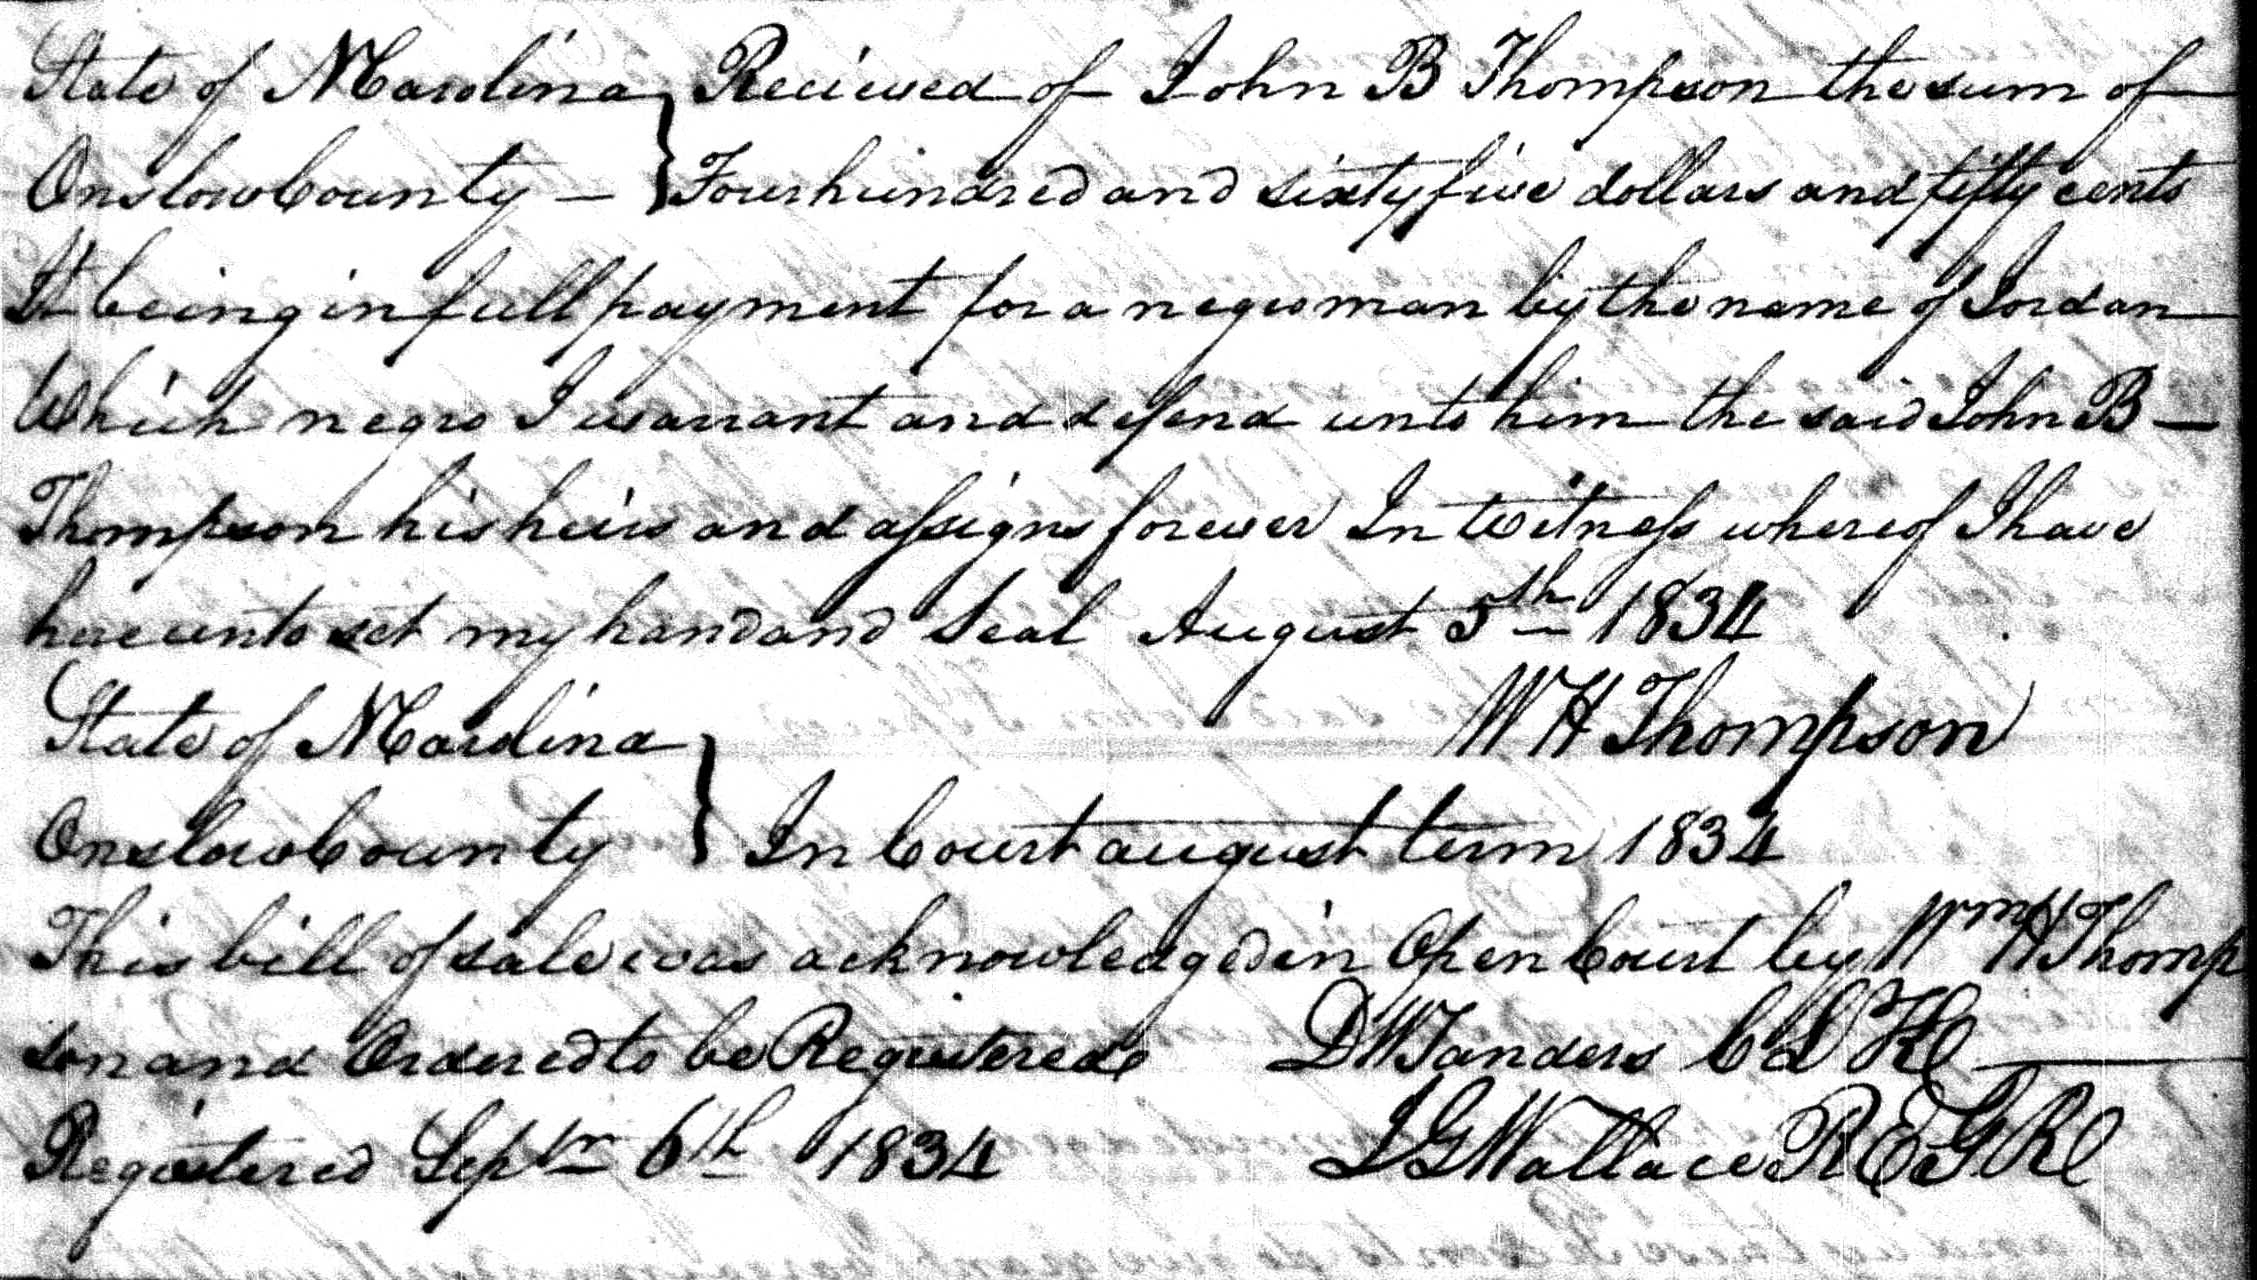 State of NCarolina } Recieved of John B Thompson the sum of
Onslow County — } Four hundred and sixty five dollars and fifty cents
It being in full payment for a negro man by the name of Jordan
Which negro I warrant and defend unto him the said John B —
Thompson his heirs and assigns forever In Witness whereof I have
hereunto set my hand and Seal August 5th 1834
W H Thompson
State of NCarolina
Onslow County } In Court august term 1834
This bill of sale was acknowledged in Open Court by Wm H Thomp
son and Ordered to be Registered D W Sanders
Registered Septr 6th 1834 J G Wallace REGR